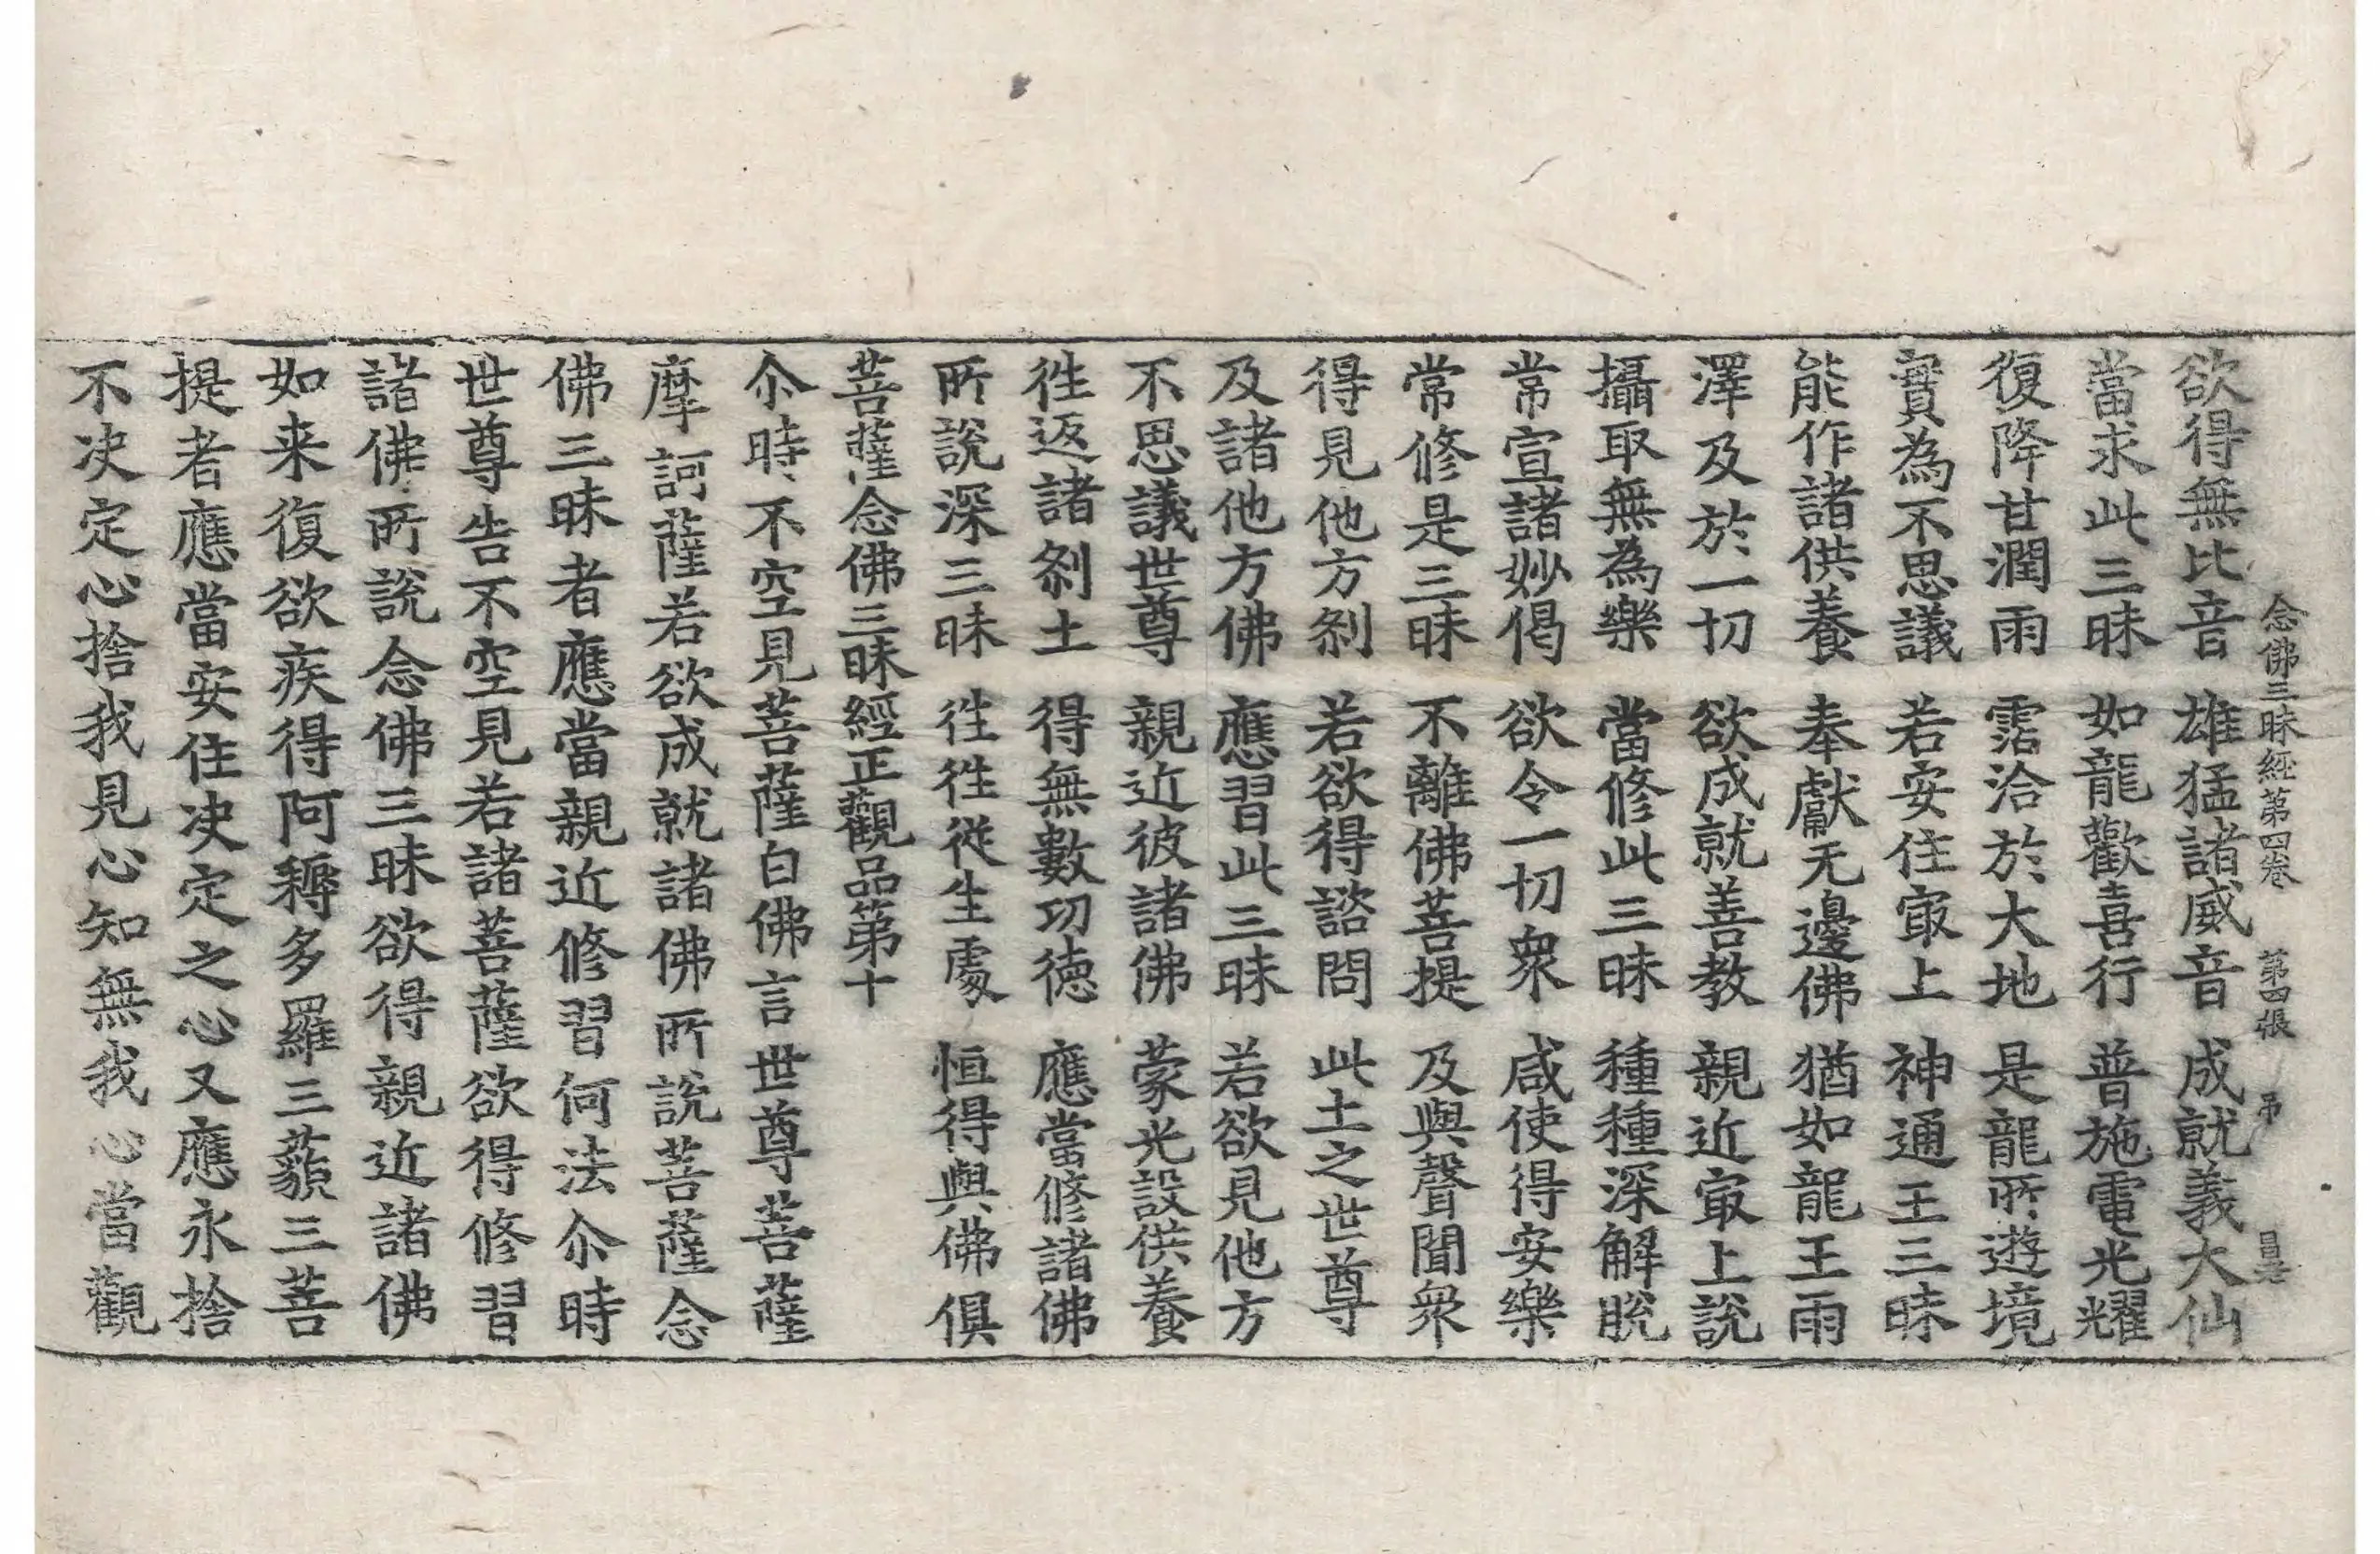 念佛三昧經第四卷 第四張 吊 昌老
欲得無比音 雄猛諸威音 成就義大仙
當求此三昧 如龍歡喜行 普施電光耀
復降甘潤雨 霑洽於大地 是龍所遊境
實為不思議 若安住㝡上 神通王三昧
能作諸供養 奉獻无邊佛 猶如龍王雨
澤及於一切 欲成就善教 親近㝡上說
攝取無為樂 當修此三昧 種種深解脫
常宣諸妙偈 欲令一切衆 咸使得安樂
常修是三昧 不離佛菩提 及與聲聞衆
得見他方刹 若欲得諮問 此土之世尊
及諸他方佛 應習此三昧 若欲見他方
不思議世尊 親近彼諸佛 蒙光設供養
徃返諸刹土 得無數功德 應當修諸佛
所說深三昧 徃徃從生處 恒得與佛俱
菩薩念佛三昧經正觀品第十
尒時不空見菩薩白佛言世尊菩薩
摩訶薩若欲成就諸佛所說菩薩念
佛三昧者應當親近修習何法尒時
世尊告不空見若諸菩薩欲得修習
諸佛所說念佛三昧欲得親近諸佛
如来復欲疾得阿耨多羅三藐三菩
提者應當安住决定之心又應永捨
不决定心捨我見心知無我心當觀